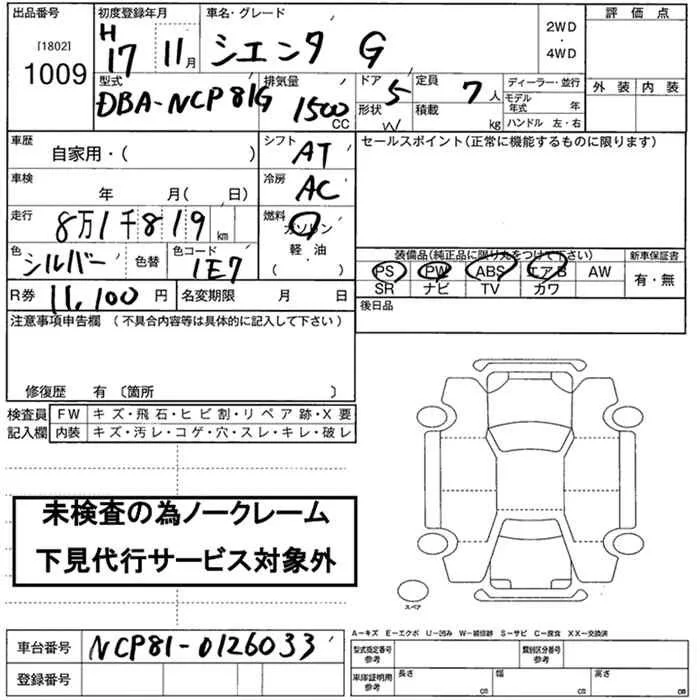 出品番号 初度登録年月 車名・グレード 評価点
[1802]
1009
H17年 11月 シエンタ G 2WD・4WD
外装 内装
型式 排気量 ドア 定員 ディーラー・並行
DBA-NCP81G 1500CC 5 7人 モデル年式 年
形状 W 積載 kg ハンドル 左・右
車歴 自家用・( ) シフト AT セールスポイント(正常に機能するものに限ります)
車検 年 月( 日) 冷房 AC
走行 8万1千819km 燃料 ガソリン
軽・油
( )
色 シルバー 色替 色コード 1E7
装備品(純正品に限り丸をつけて下さい) 新車保証書
PS PW ABS エアB AW 有・無
SR ナビ TV カワ
R券 11,100円 名変期限 月 日 後日品
注意事項申告欄(不具合内容等は具体的に記入して下さい)
修復歴 有〔箇所 〕
検査員記入欄
FW キズ・飛石・ヒビ割・リペア跡・X要
内装 キズ・汚レ・コゲ・穴・スレ・キレ・破レ
未検査の為ノークレーム
下見代行サービス対象外
スペア
A-キズ E-エクボ U-凹み W-補修跡 S-サビ C-腐食 XX-交換済
車台番号 NCP81-0126033
登録番号
型式指定番号参考 類別区分番号参考
車庫証明用参考 長さ cm 幅 cm 高さ cm